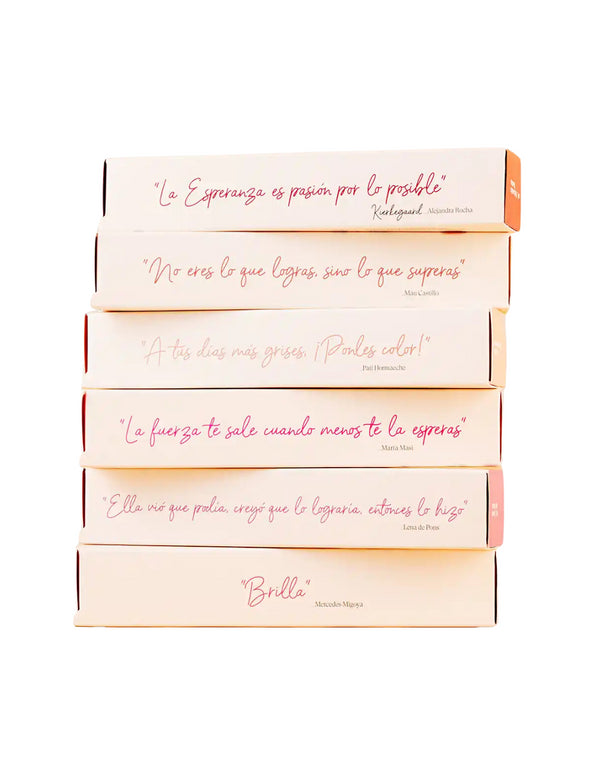 "La Esperanza es pasión por lo posible"
Kierkegaard Alejandra Rocha
"No eres lo que logras, sino lo que superas"
Mau Castillo
"A tus días más grises, ¡Ponles color!"
Pati Hormaeche
"La fuerza te sale cuando menos te la esperas"
María Masi
"Ella vió que podía, creyó que lo lograría, entonces lo hizo"
Lena de Pons
"Brilla"
Mercedes Migoya